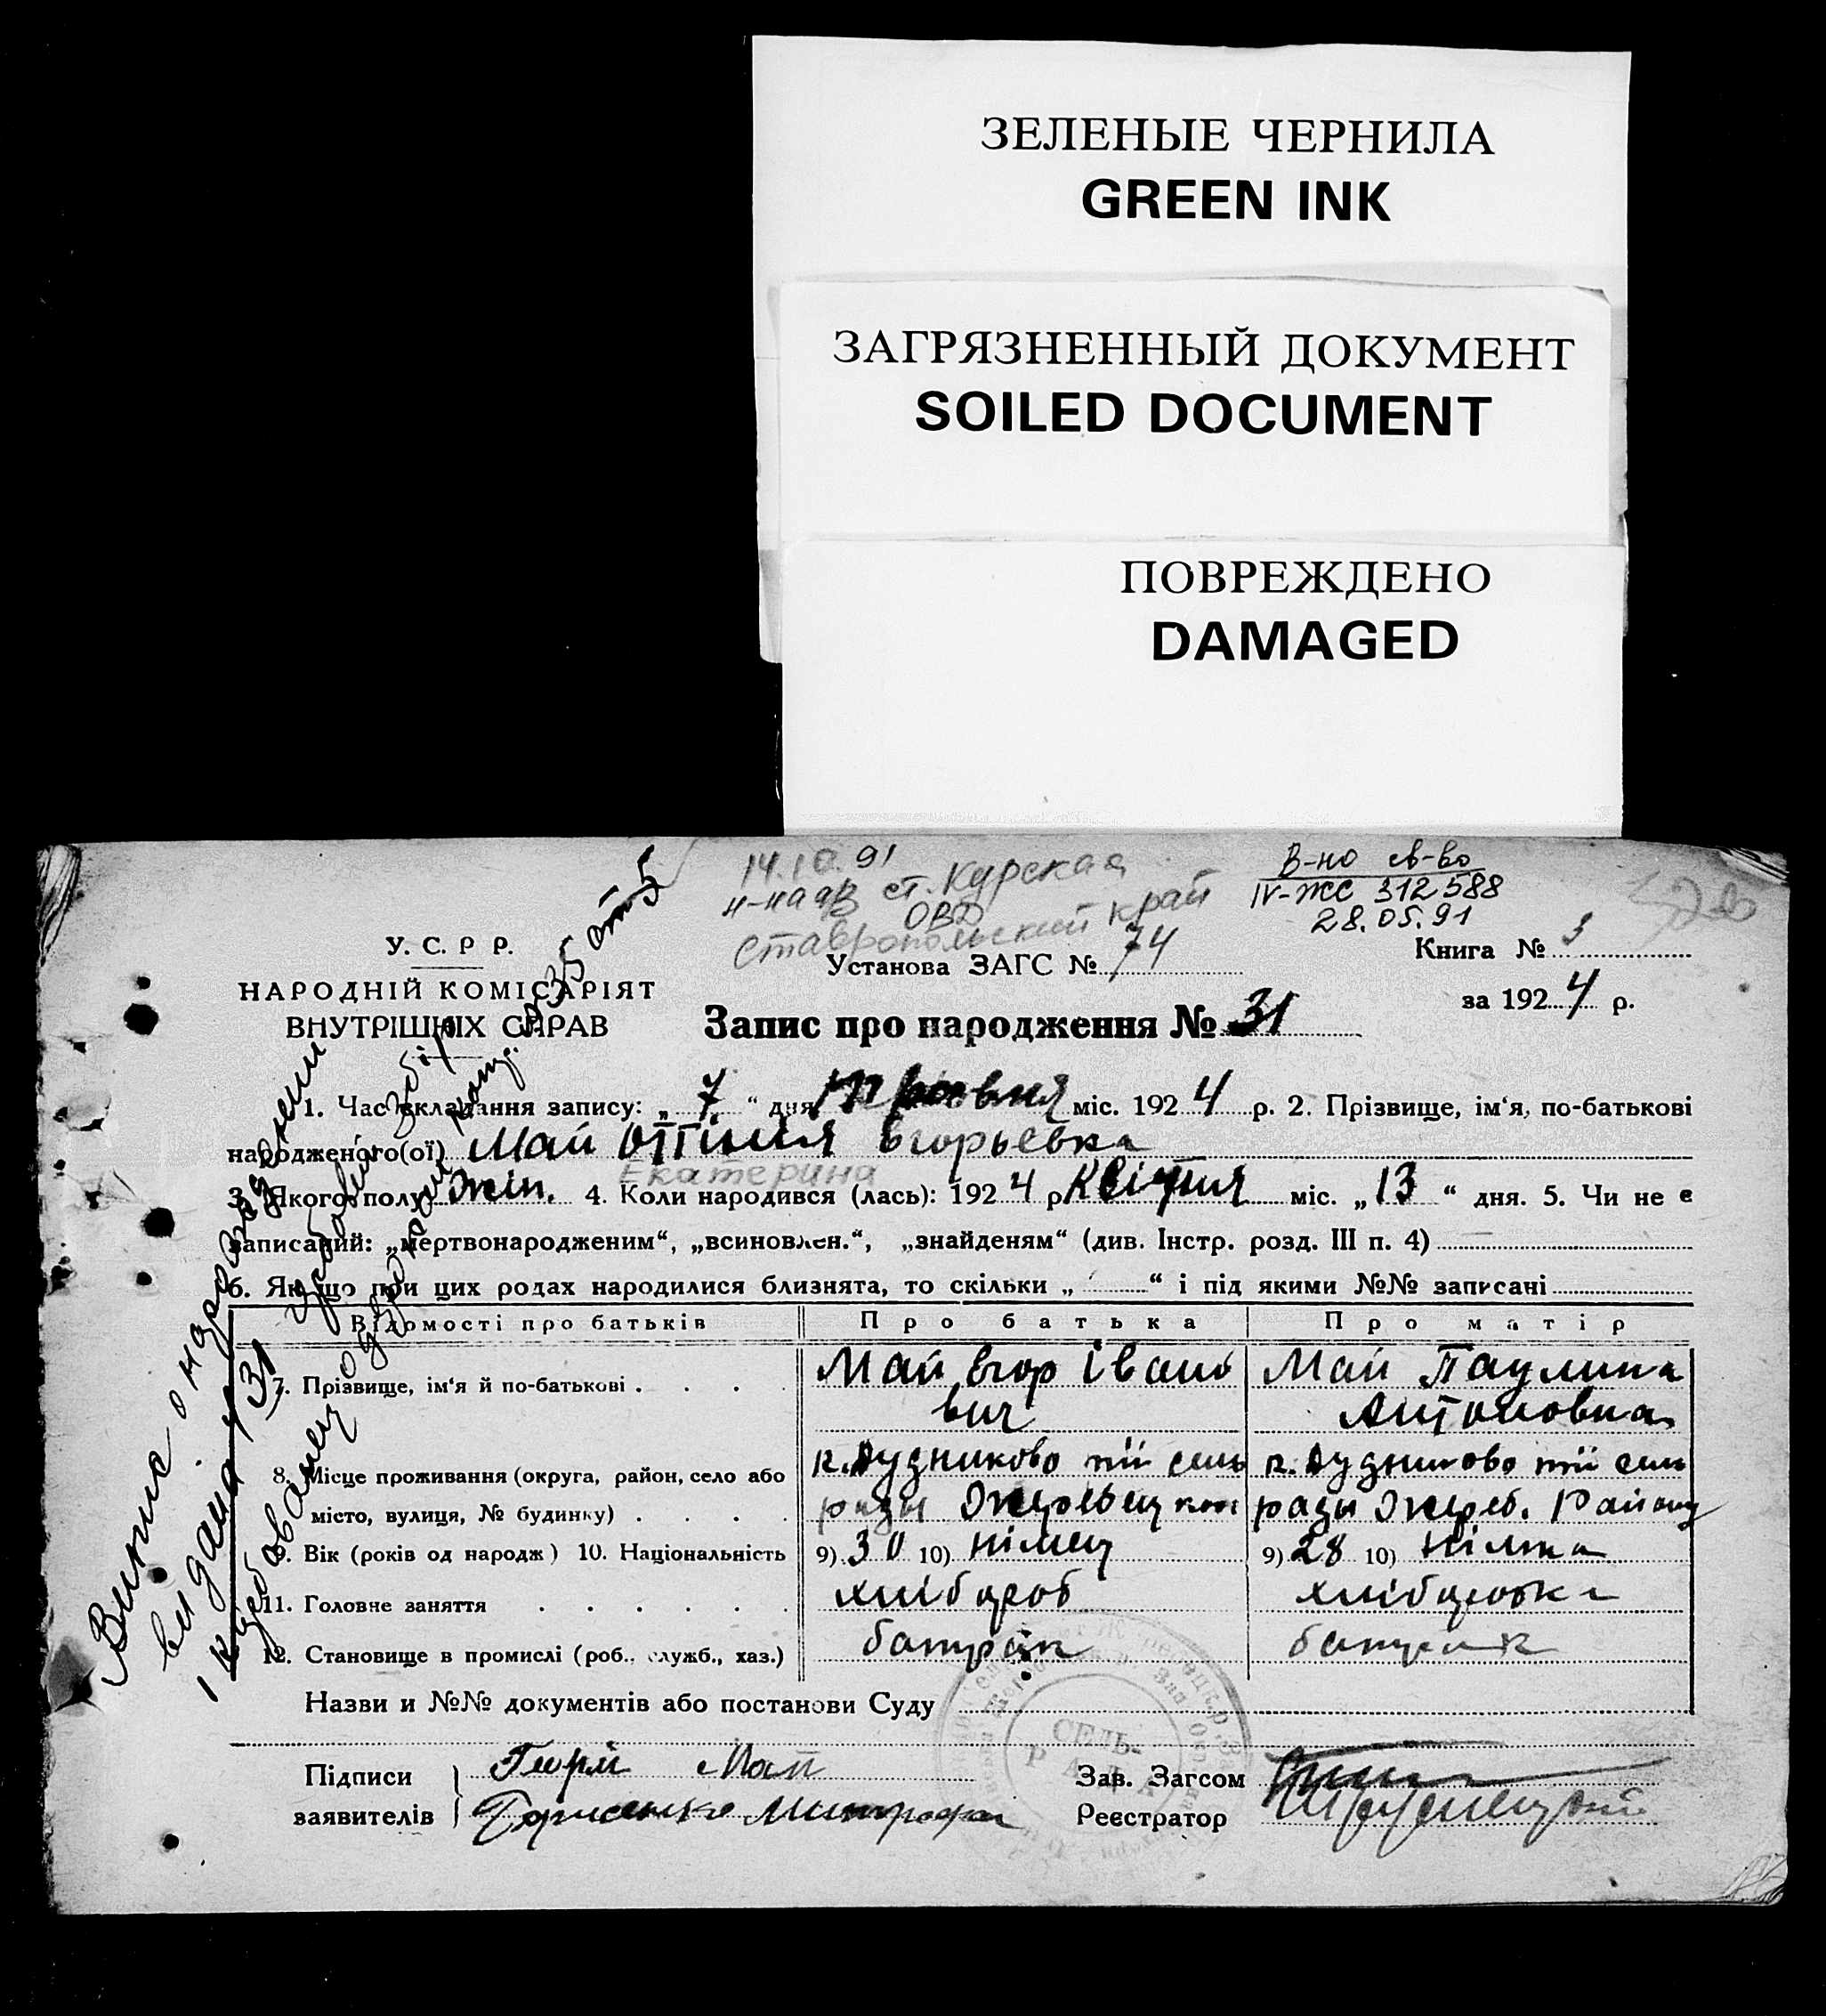 ЗЕЛЕНЫЕ ЧЕРНИЛА
GREEN INK
ЗАГРЯЗНЕННЫЙ ДОКУМЕНТ
SOILED DOCUMENT
ПОВРЕЖДЕНО
DAMAGED
14.10.91
ст. Курская
ОВД
Ставропольский край
В-но св-во
IV-ЖС 312588
28.05.91
У.С.Р Р.
НАРОДНІЙ КОМІСАРІЯТ
ВНУТРІШНІХ СПРАВ
Установа ЗАГС № 74
Книга № 3
за 1924 р.
Запис про народження № 31
1. Час складання запису: „ 7 “ дня травня міс. 1924 р. 2. Прізвище, ім‘я, по-батькові
народженого(ої) Май Егорьевка
Екатерина
3. Якого полу жін. 4. Коли народився (лась): 1924 р квітня міс. „13 “ дня. 5. Чи не є
записаний: „мертвонародженим“, „всиновлен.“, „знайденям“ (див. Інстр. розд. III п. 4)
6. Якщо при цих родах народилися близнята, то скільки „ “ і під якими №№ записані
Відомості про батьків Про батька Про матір
7. Прізвище, ім‘я й по-батькові Май Єгор Івано Май Паулина
вич Антоновна
8. Місце проживання (округа, район, село або к. Дудниково сель к. Дудниково
місто, вулиця, № будинку) ради ради Жереб. Району
9. Вік (років од народж) 10. Національність 9) 30 10) Німец 9) 28 10) Німка
11. Головне заняття хлібороб хліборобка
12. Становище в промислі (роб., служб., хаз.) батрак батрак
Назви и №№ документів або постанови Суду
СЕЛЬ-
РАДА
Підписи Георг Май Зав. Загсом
заявителів Реєстратор